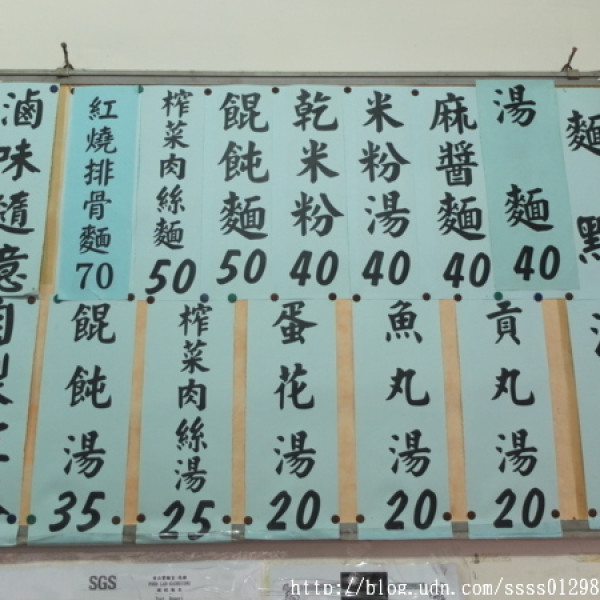 麵
湯麵 40
麻醬麵 40
米粉湯 40
乾米粉 40
餛飩麵 50
榨菜肉絲麵 50
紅燒排骨麵 70
滷味隨意
貢丸湯 20
魚丸湯 20
蛋花湯 20
榨菜肉絲湯 25
餛飩湯 35
SGS
http://blog.udn.com/ssss01298